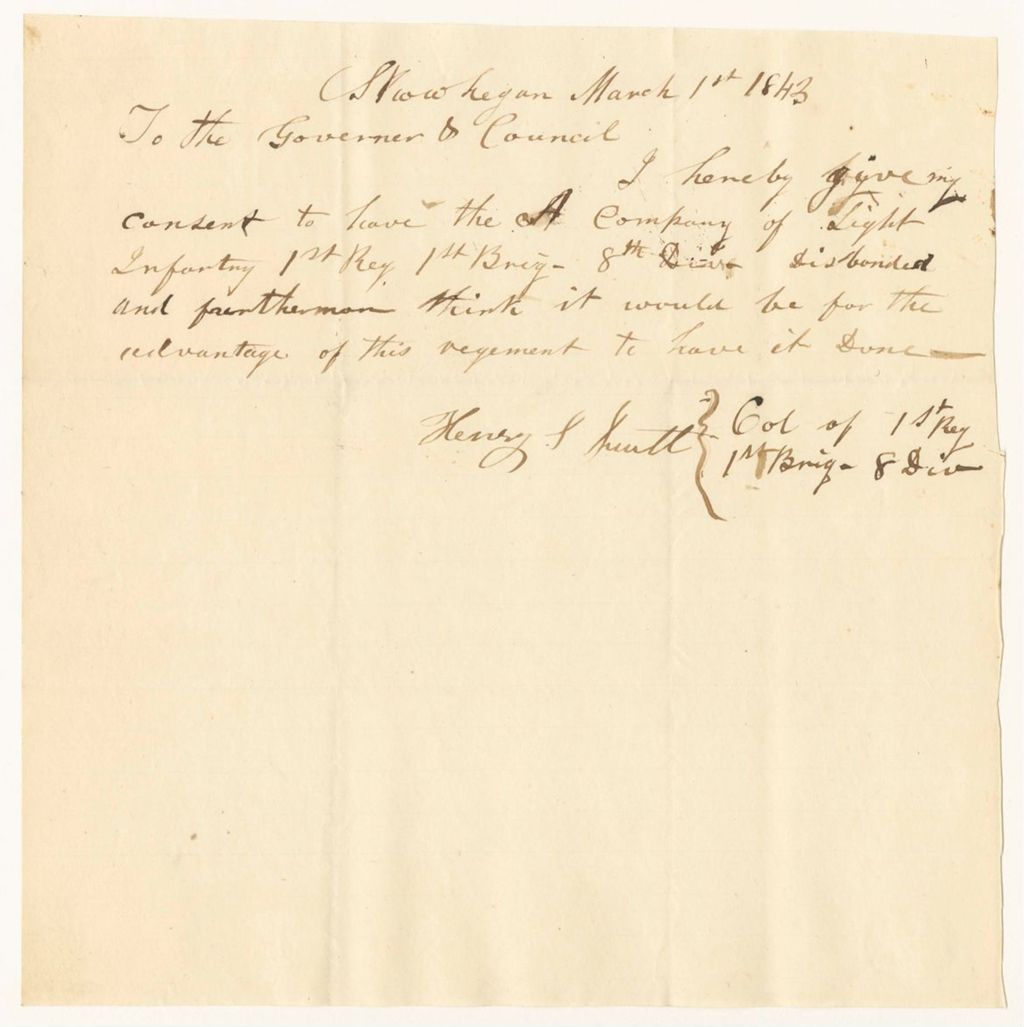 Skowhegan March 1st 1843
To the Governer & Council
I hereby give my
consent to have the A Company of Light
Infantry 1st Reg 1st Brig- 8th Div- Disbanded
and furthermore think it would be for the
advantage of this regement to have it Done—
Henry S { Col of 1st Reg
1st Brig- 8 Div